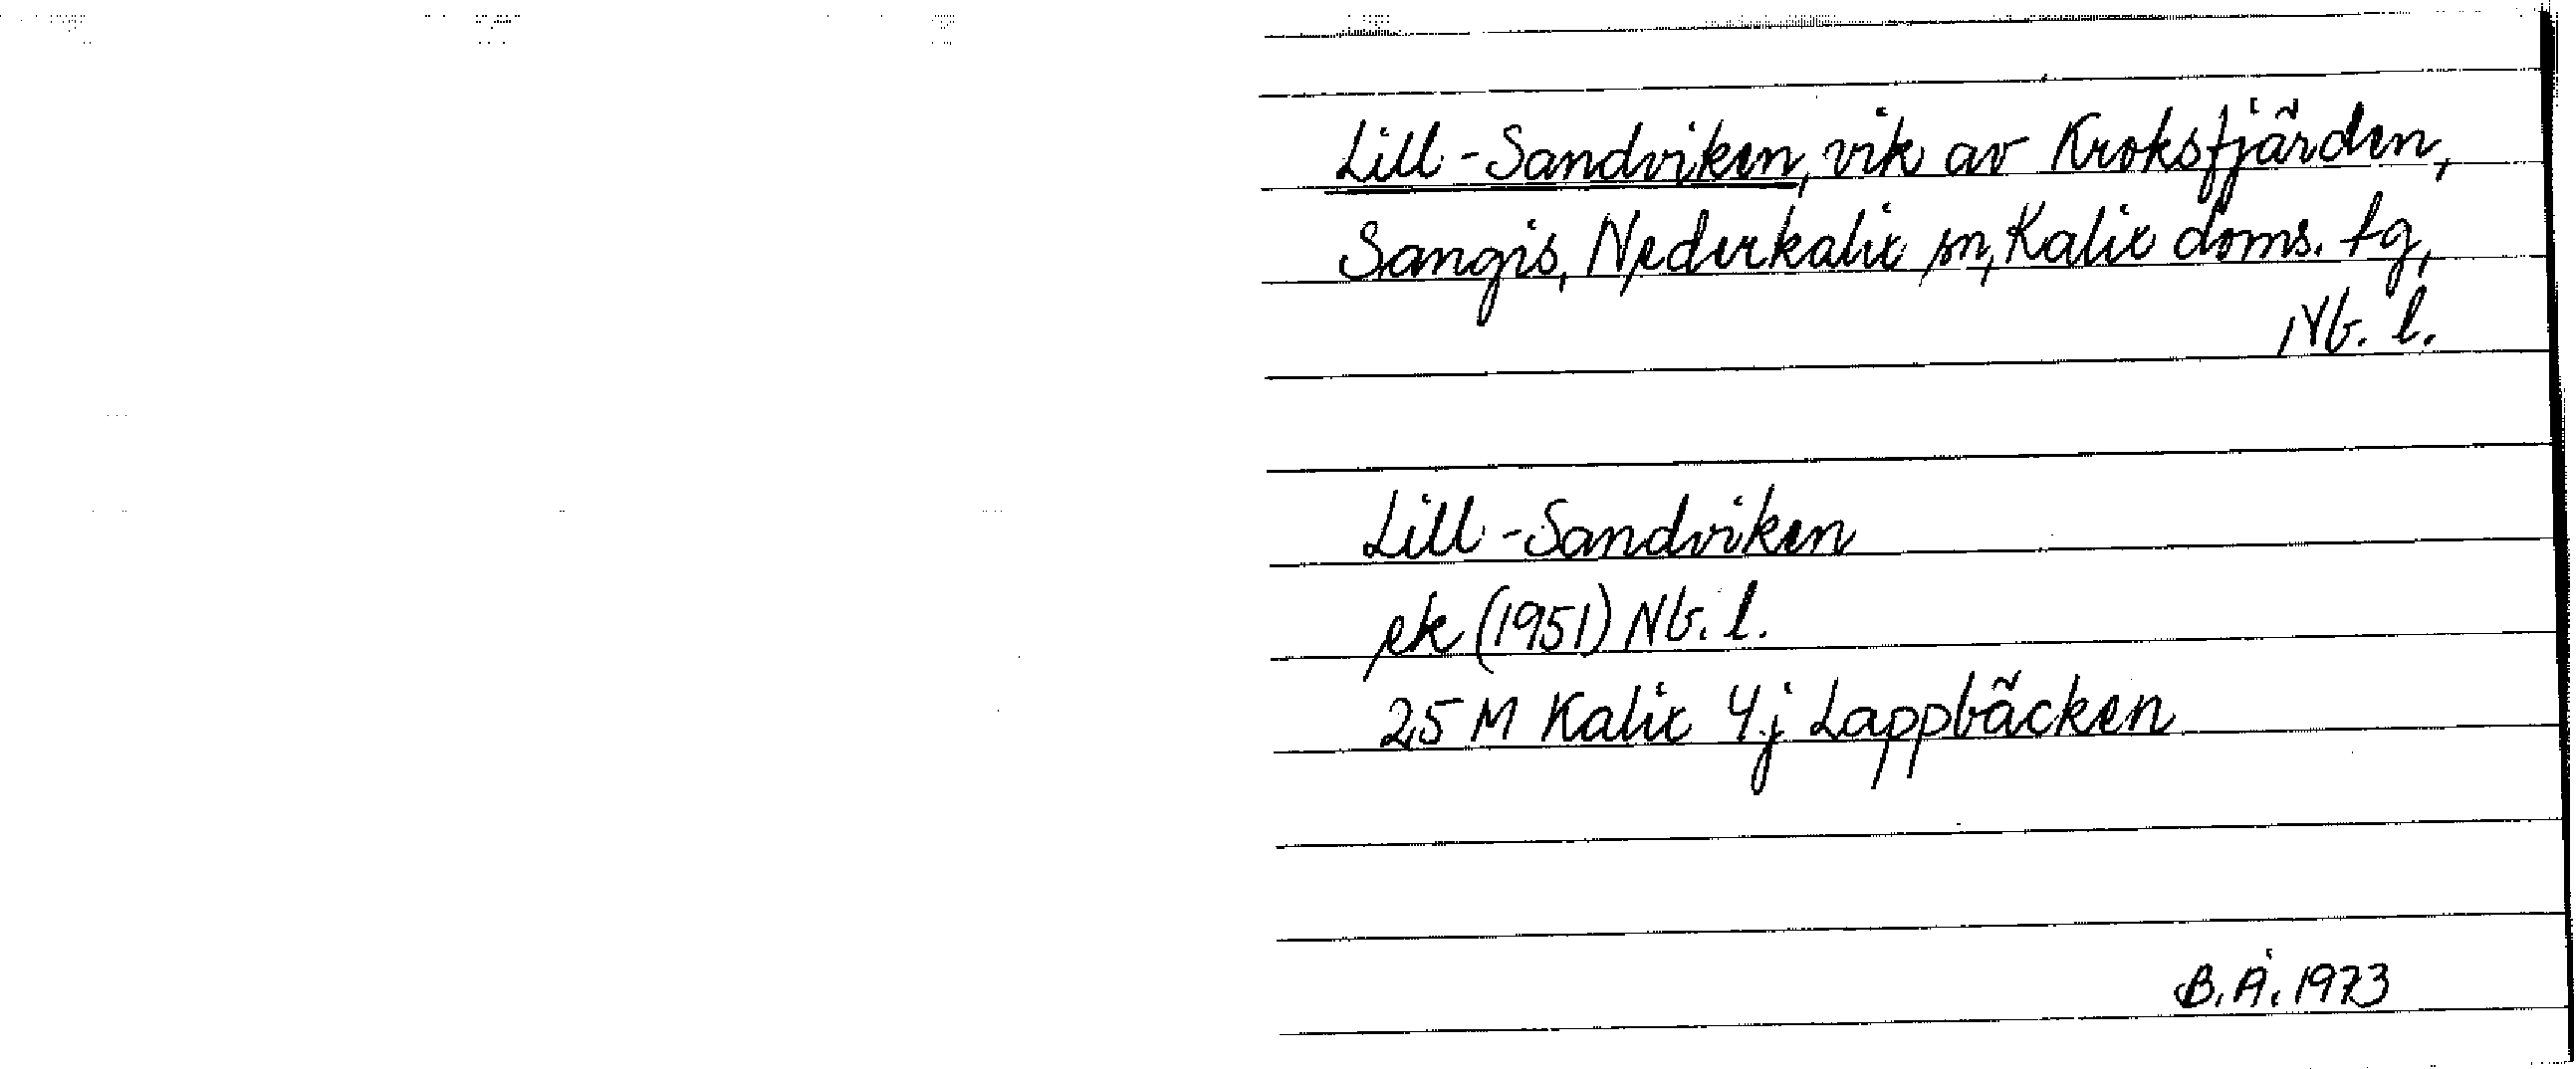 Lill-Sandviken, vik av Kroksfjärden,
Sangis, Nederkalix sn, Kalix doms. tg,
Nb. l.
Lill-Sandviken
ek (1951) Nb. l.
25 M Kalix 4j Lappbäcken
B.Å. 1973